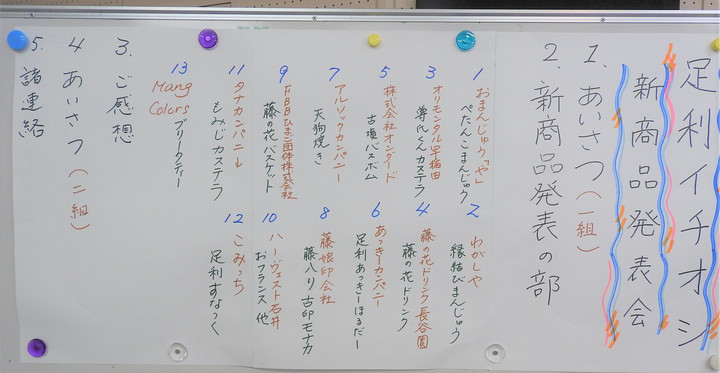 足利イチオシ
新商品発表会
1. あいさつ(一組)
2. 新商品発表の部
1
おまんじゅう「や」
ぺたんこまんじゅう
2
わがしや
縁結びまんじゅう
3
オリモンタル早稲田
尊氏くんカステラ
4
藤の花ドリンク長谷園
藤の花ドリンク
5
株式会社オンダード
古墳バスボム
6
あっきーカンパニー
足利あっきーほるだー
7
アルソックカンパニー
天狗焼き
8
藤姫印会社
藤入り古印モナカ
9
団体株式会社
藤の花バスケット
10
ハーヴェスト石井
おフランス 他
11
タナカンパニー
もみじカステラ
12
こみっち
足利すなっく
13
Mang Colors
ブリークティー
3. ご感想
4 あいさつ(二組)
5. 諸連絡